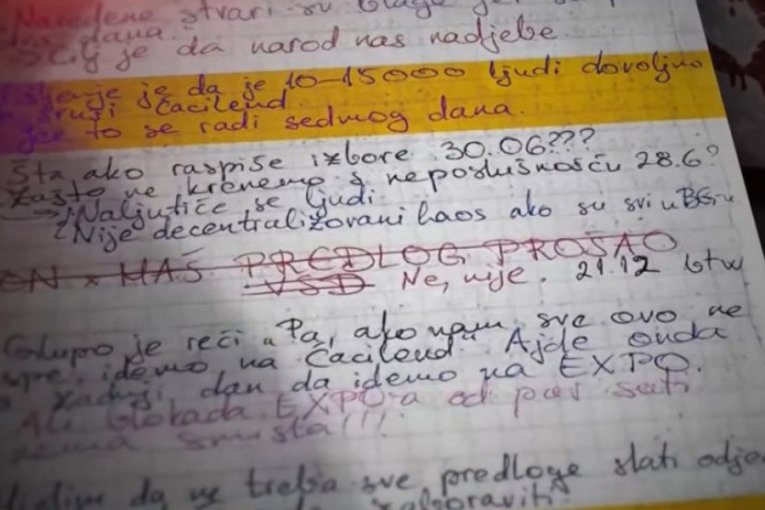 Naređene stvari su blage
dana.
Cilj je da narod nas nadjebe.
je da je 10-15000 ljudi dovoljno
sruši Ćacilend
jer to se radi sedmog dana.
Šta ako raspiše izbore 30.06???
Zašto ne krenemo s neposlušnošću 28.6?
→ 1 Naljutiće se ljudi.
2 Nije decentralizovani haos ako su svi u BG-u
PREDLOG PROŠAO
VSD Ne, nije. 21.12 btw
Glupo je reći „Pa, ako nam sve ovo ne
uspe, idemo na Ćacilend" Ajde onda
zadnji dan da idemo na EXPO.
Ali blokada EXPO-a od par sati
nema smisla!!!
da ne treba sve predloge slati odje
zaboraviti.